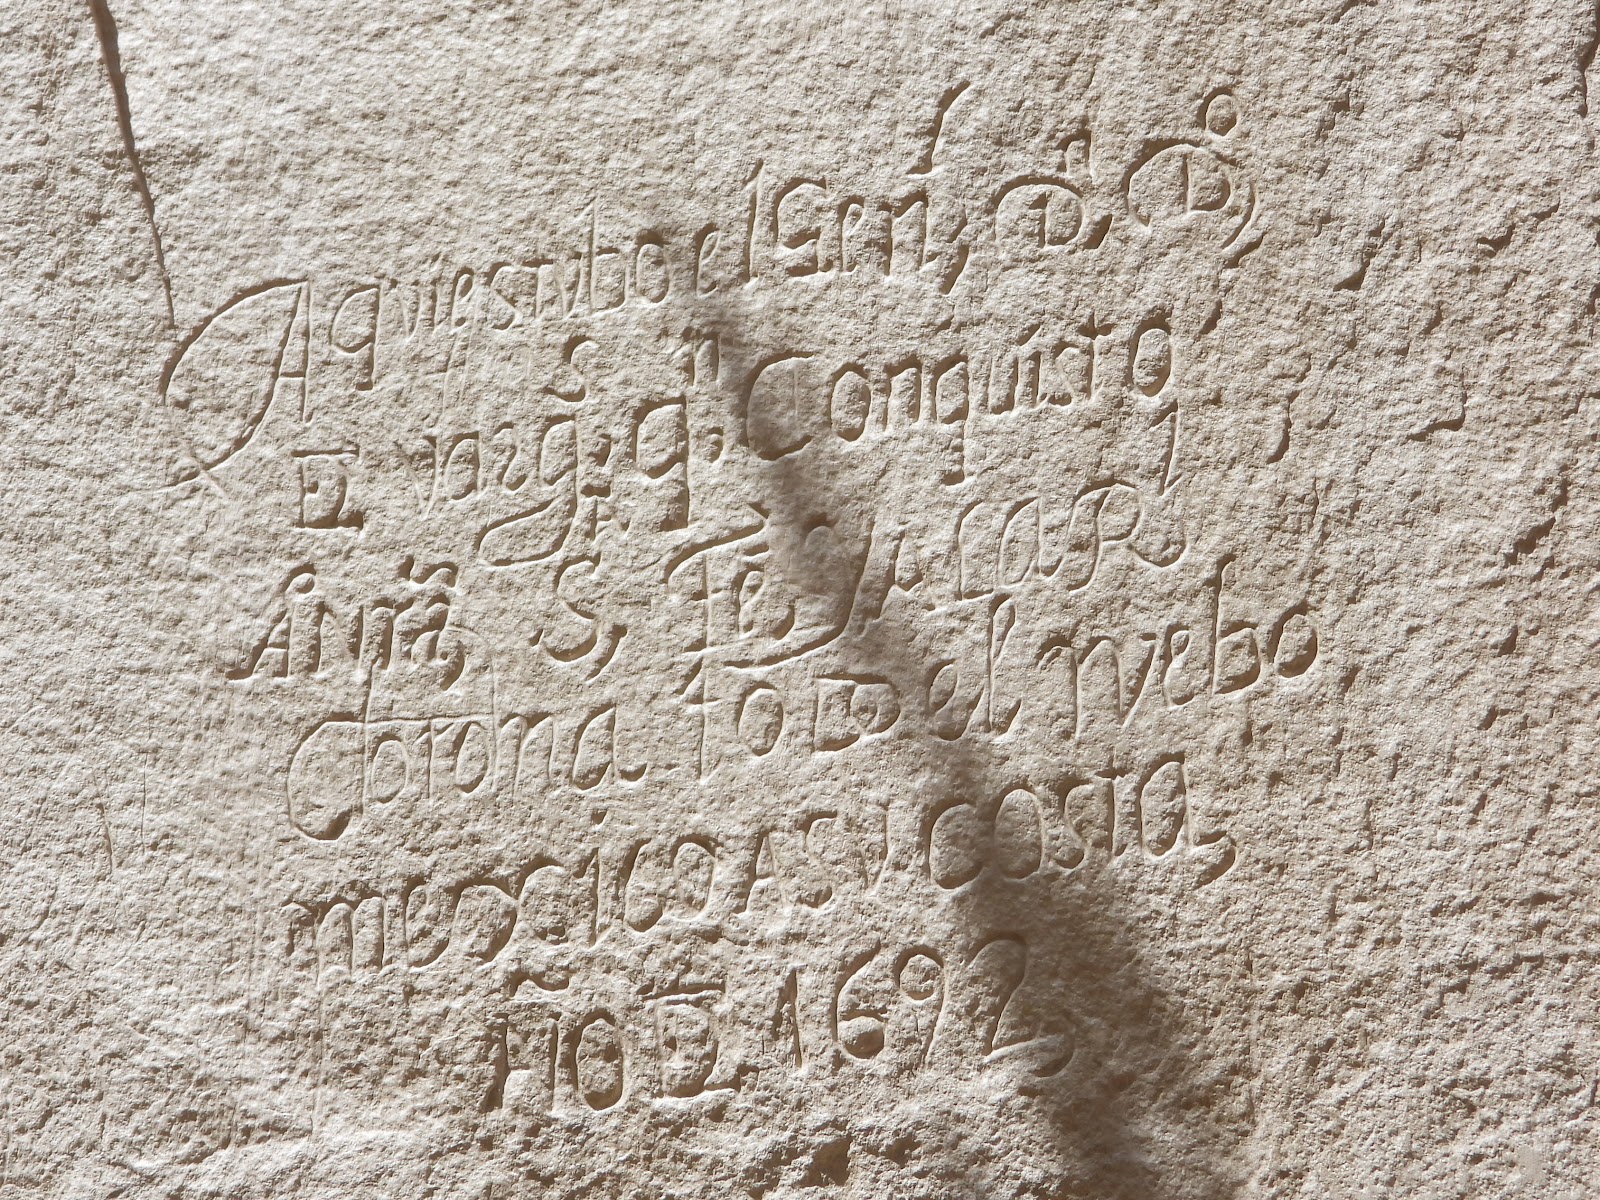 Aqui estubo el Genl Dn Do
DE Vargs qn Conquisto
A Nra Sta Fe y a la Rl
Corona todo el nuebo
mexico A Su Costa,
Año DE 1692